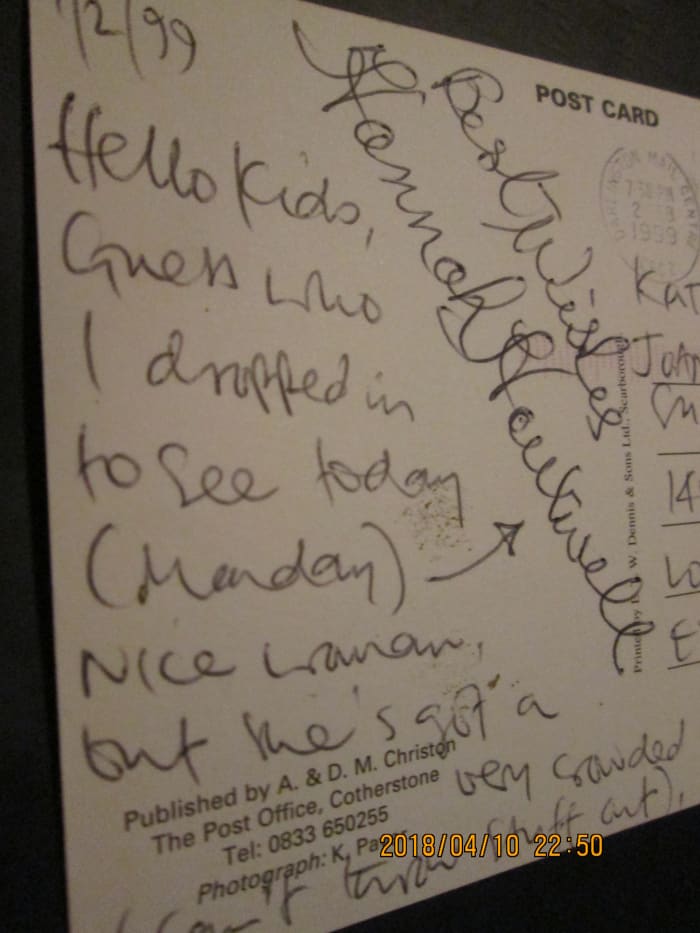 1/2/99
Hello Kids,
Guess who
I dropped in
to see today
(Monday)
Nice woman,
but she's got a
very crowded
can't throw stuff out),
Best Wishes
Hannah Hauxwell
POST CARD
7:30 PM
2
1999
Kat
Printed by E.T.W. Dennis & Sons Ltd., Scarborough
14
Published by A. & D. M. Christon
The Post Office, Cotherstone
Tel: 0833 650255
Photograph: K.
2018/04/10 22:50